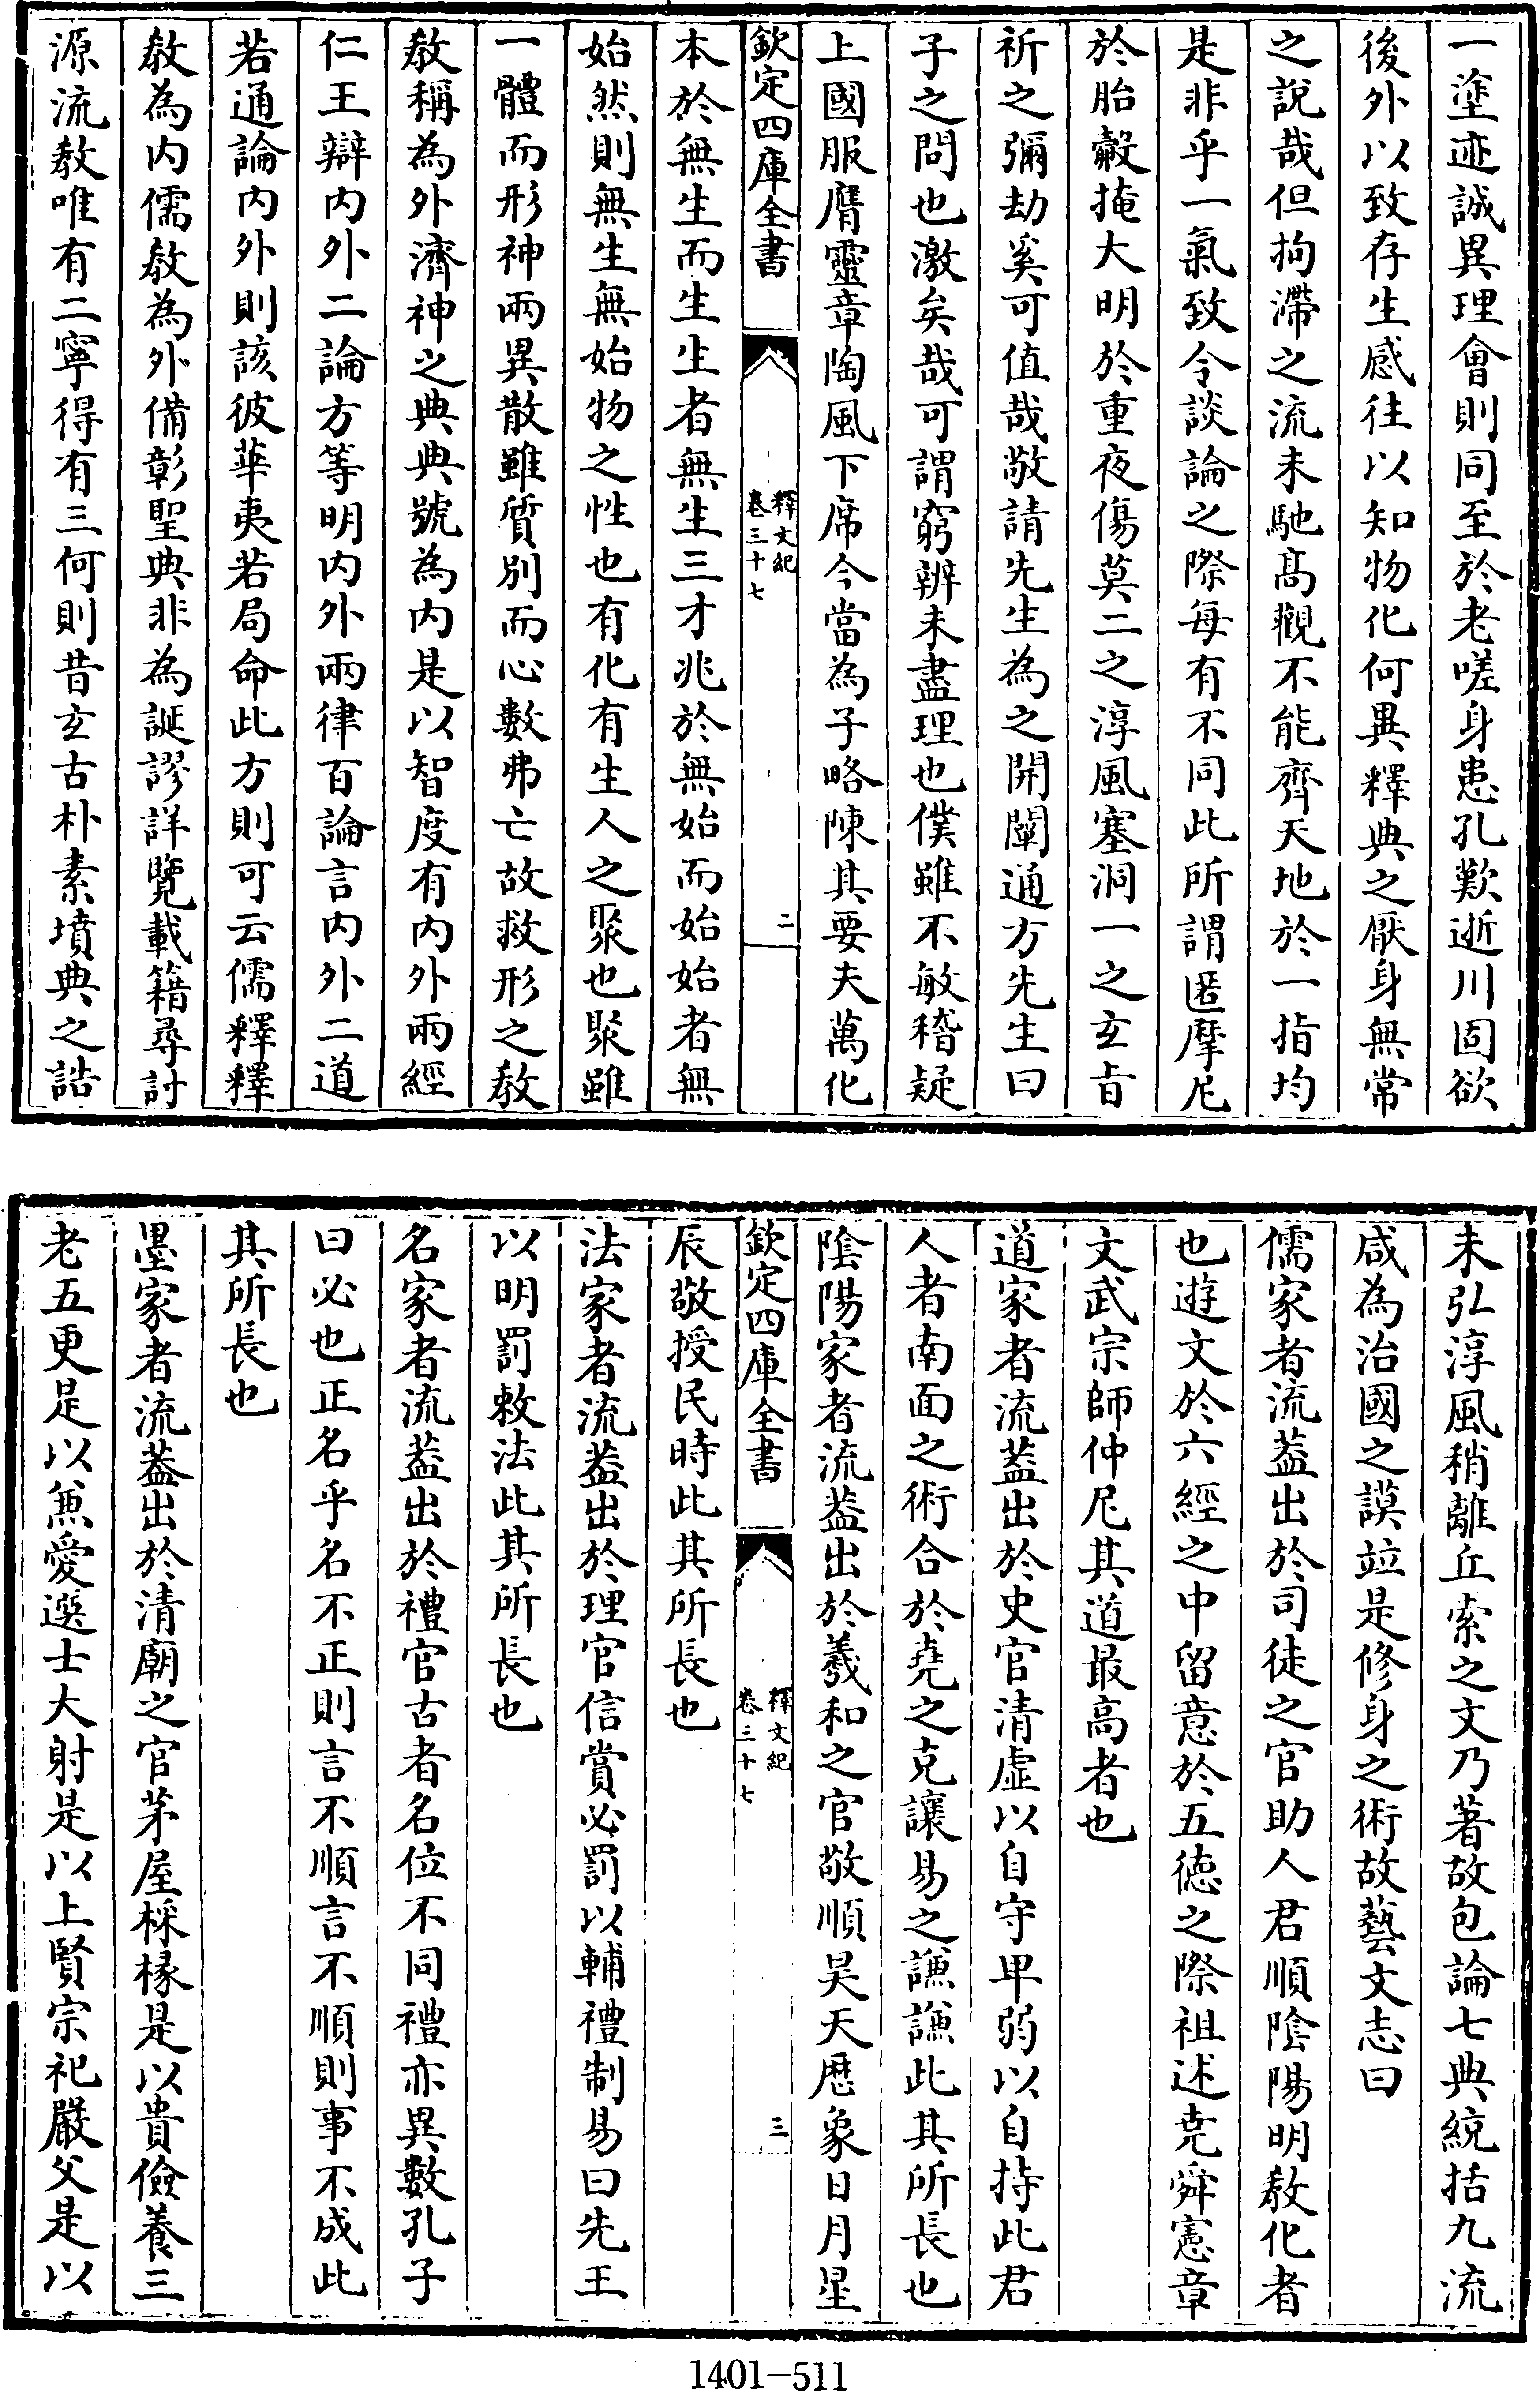 一塗迹誠異理會則同至於老嗟身患孔歎逝川固欲
後外以致存生感往以知物化何異釋典之厭身無常
之說哉但拘滯之流未馳髙觀不能齊天地於一指均
是非乎一氣致令談論之際每有不同此所謂匿摩尼
於胎㲉掩大明於重夜傷莫二之淳風塞洞一之玄㫖
祈之彌劫奚可值哉敬請先生為之開闡通方先生曰
子之問也激矣哉可謂窮辨未盡理也僕雖不敏稽疑
上國服膺靈章陶風下席今當為子略陳其要夫萬化
欽定四庫全書
釋文紀
卷三十七
二
本於無生而生生者無生三才兆於無始而始始者無
始然則無生無始物之性也有化有生人之聚也聚雖
一體而形神兩異散雖質別而心數弗亡故救形之教
教稱為外濟神之典典號為内是以智度有内外兩經
仁王辯内外二論方等明内外兩律百論言内外二道
若通論内外則該彼華夷若局命此方則可云儒釋釋
教為内儒教為外備彰聖典非為誕謬詳覽載籍尋討
源流教唯有二寧得有三何則昔玄古朴素墳典之誥
未弘淳風稍離丘索之文乃著故包論七典統括九流
咸為治國之謨竝是修身之術故藝文志曰
儒家者流葢出於司徒之官助人君順陰陽明教化者
也遊文於六經之中留意於五徳之際祖述堯舜憲章
文武宗師仲尼其道最高者也
道家者流葢出於史官清虚以自守卑弱以自持此君
人者南面之術合於堯之克讓易之謙謙此其所長也
陰陽家者流葢出於羲和之官敬順昊天歴象日月星
欽定四庫全書
釋文紀
卷三十七
三
辰敬授民時此其所長也
法家者流葢出於理官信賞必罰以輔禮制易曰先王
以明罰敕法此其所長也
名家者流葢出於禮官古者名位不同禮亦異數孔子
曰必也正名乎名不正則言不順言不順則事不成此
其所長也
墨家者流葢出於清廟之官茅屋採椽是以貴儉養三
老五更是以兼愛選士大射是以上賢宗祀嚴父是以
1401-511